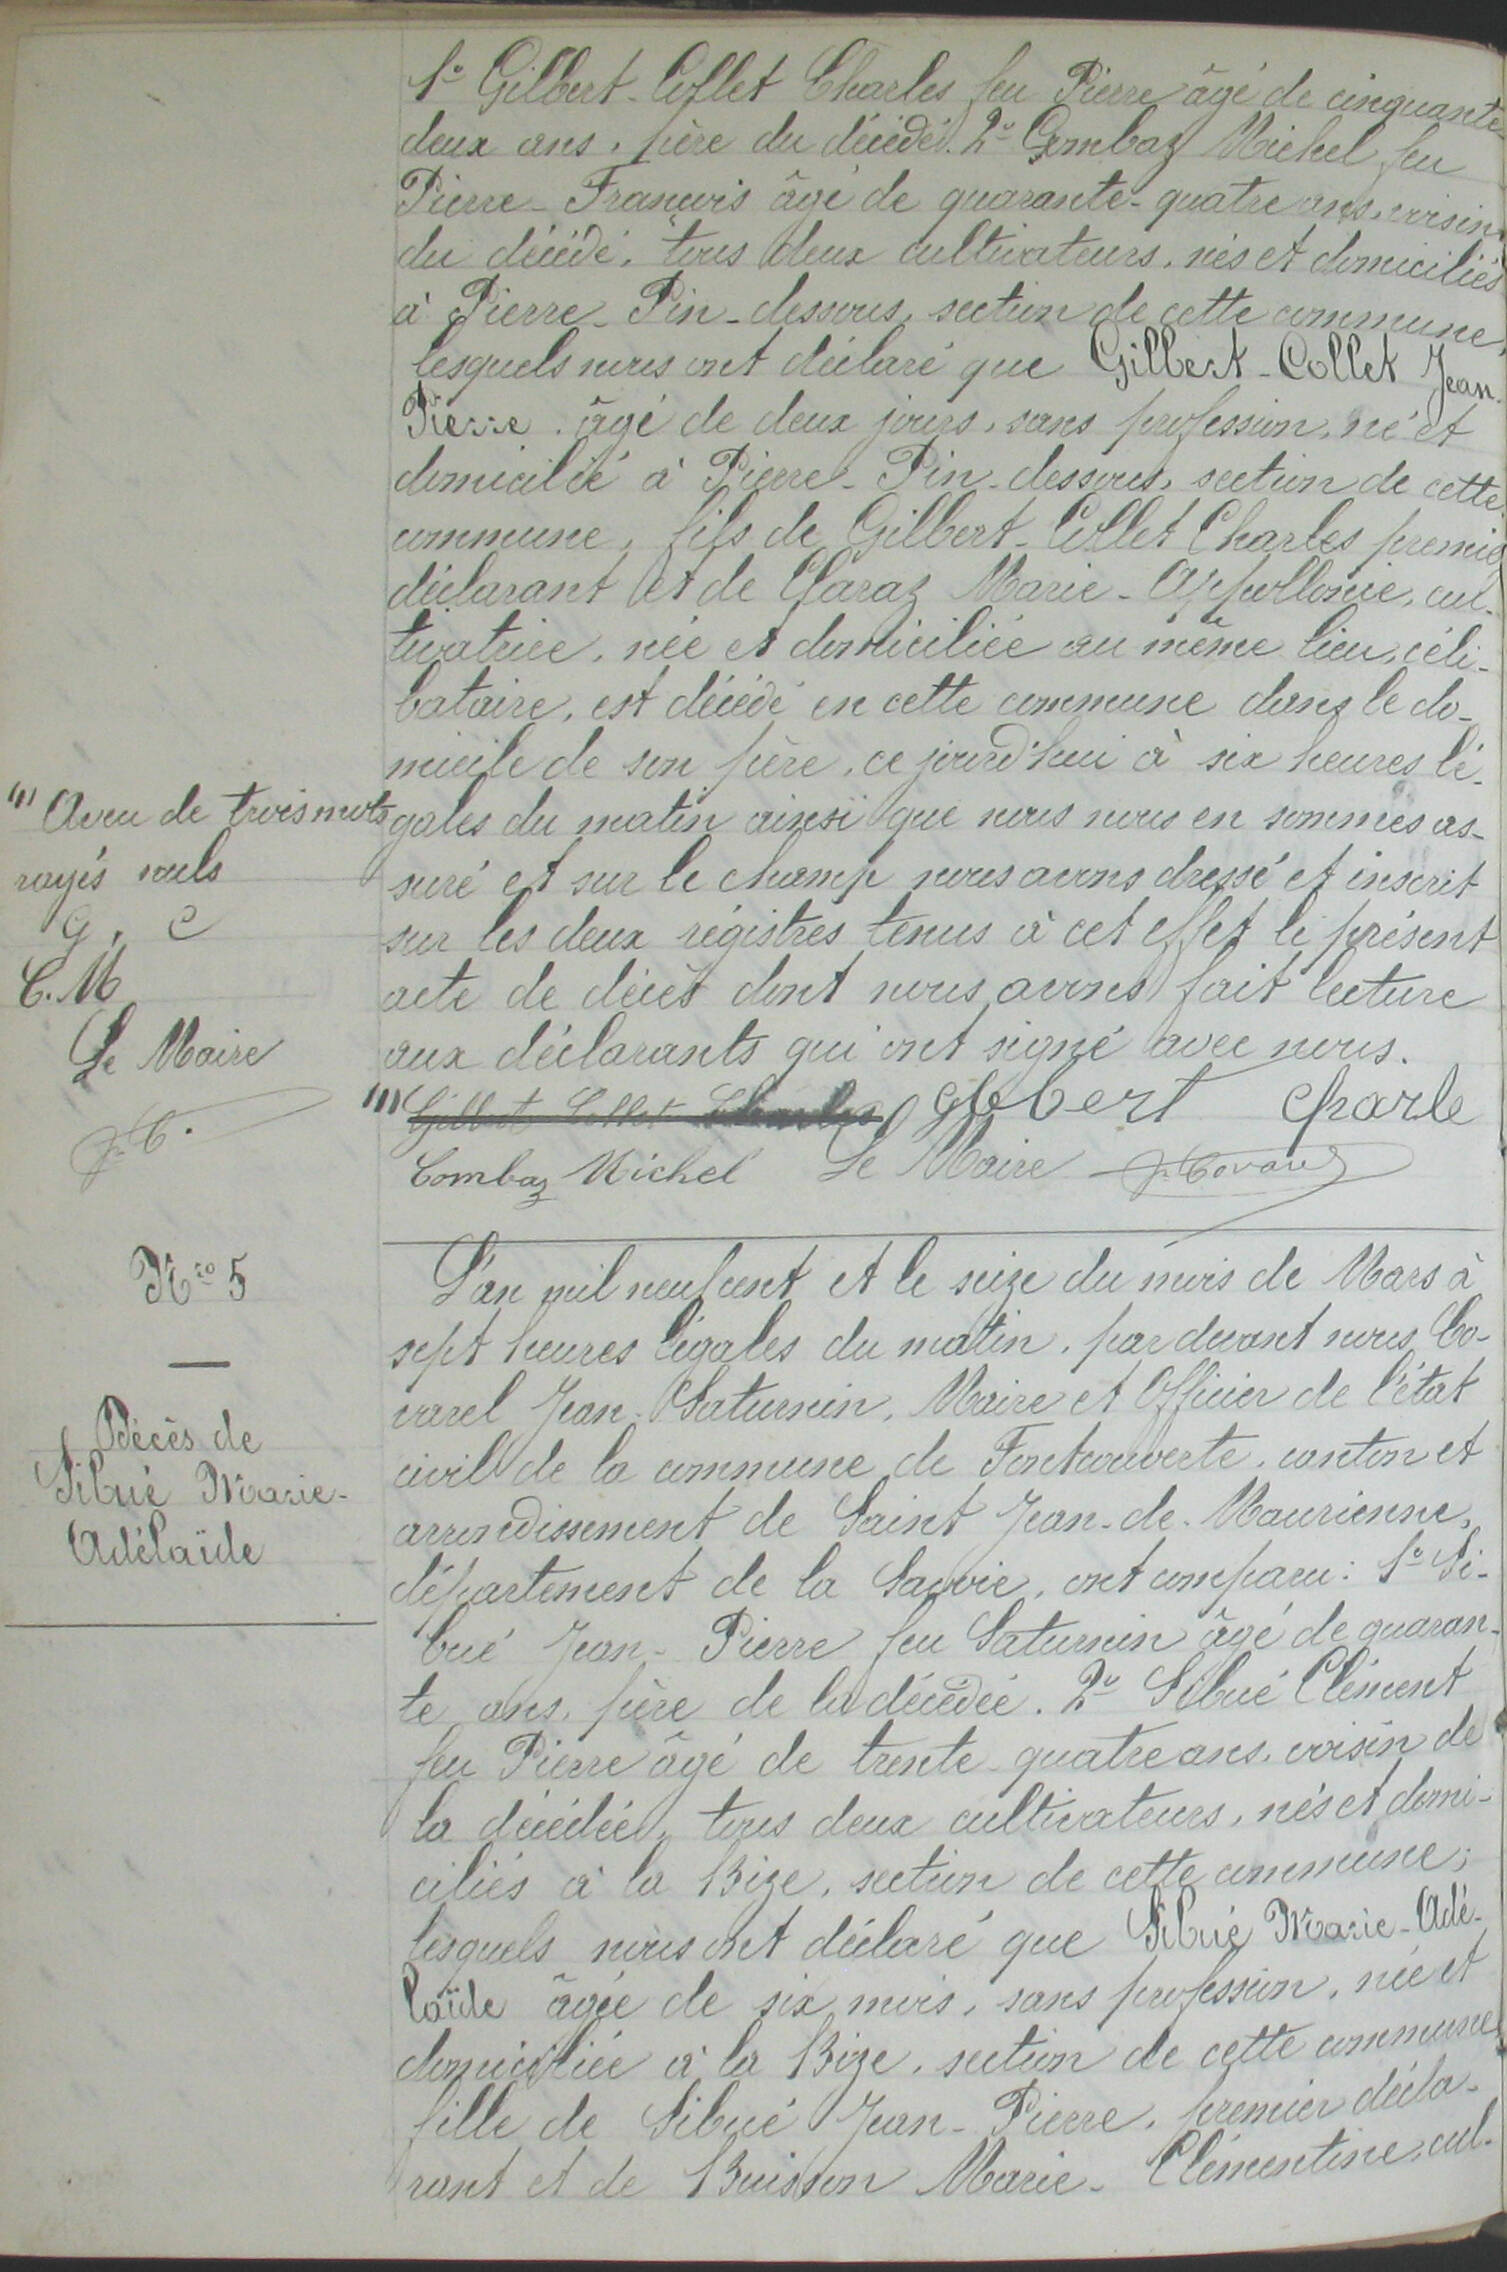 1o Gilbert-Collet Charles feu Pierre âgé de cinquante
deux ans, père du décédé. 2o Combaz Michel feu
Pierre-François âgé de quarante-quatre ans, voisin
du décédé, tous deux cultivateurs, nés et domiciliés
à Pierre-Pin-dessous, section de cette commune,
lesquels nous ont déclaré que Gilbert-Collet Jean-
Pierre, âgé de deux jours, sans profession, né et
domicilié à Pierre-Pin-dessous, section de cette
commune, fils de Gilbert-Collet Charles premier
déclarant et de Claraz Marie-Appollonie, cul-
tivatrice, née et domiciliée au même lieu, céli-
bataire, est décédé en cette commune dans le do-
micile de son père, ce jourd'hui à six heures lé-
gales du matin ainsi que nous nous en sommes as-
suré et sur le champ nous avons dressé et inscrit
sur les deux régistres tenus à cet effet le présent
acte de décès dont nous avons fait lecture
aux déclarants qui ont signé avec nous.
(1) Gilbert Collet Charles Gilbert Charle
Combaz Michel Le Maire J. Covarel
(1) Aveu de trois mots
rayés nuls
G, C
C. M
Le Maire
J. C.
Nro 5
Décès de
Sibué Marie-
Adélaïde
L'an mil neuf cent et le seize du mois de Mars à
sept heures légales du matin, par devant nous Co-
varel Jean-Saturnin, Maire et Officier de l'état
civil de la commune de Fontcouverte, canton et
arrondissement de Saint Jean-de-Maurienne,
département de la Savoie, ont comparu: 1o Si-
bué Jean-Pierre feu Saturnin âgé de quaran-
te ans, père de la décédée. 2o Sibué Clément
feu Pierre âgé de trente-quatre ans, voisin de
la décédée, tous deux cultivateurs, nés et domi-
ciliés à la Bize, section de cette commune;
lesquels nous ont déclaré que Sibué Marie-Adé-
laïde âgée de six mois, sans profession, née et
domiciliée à la Bize, section de cette commune
fille de Sibué Jean-Pierre, premier décla-
rant et de Buisson Marie-Clémentine, cul-